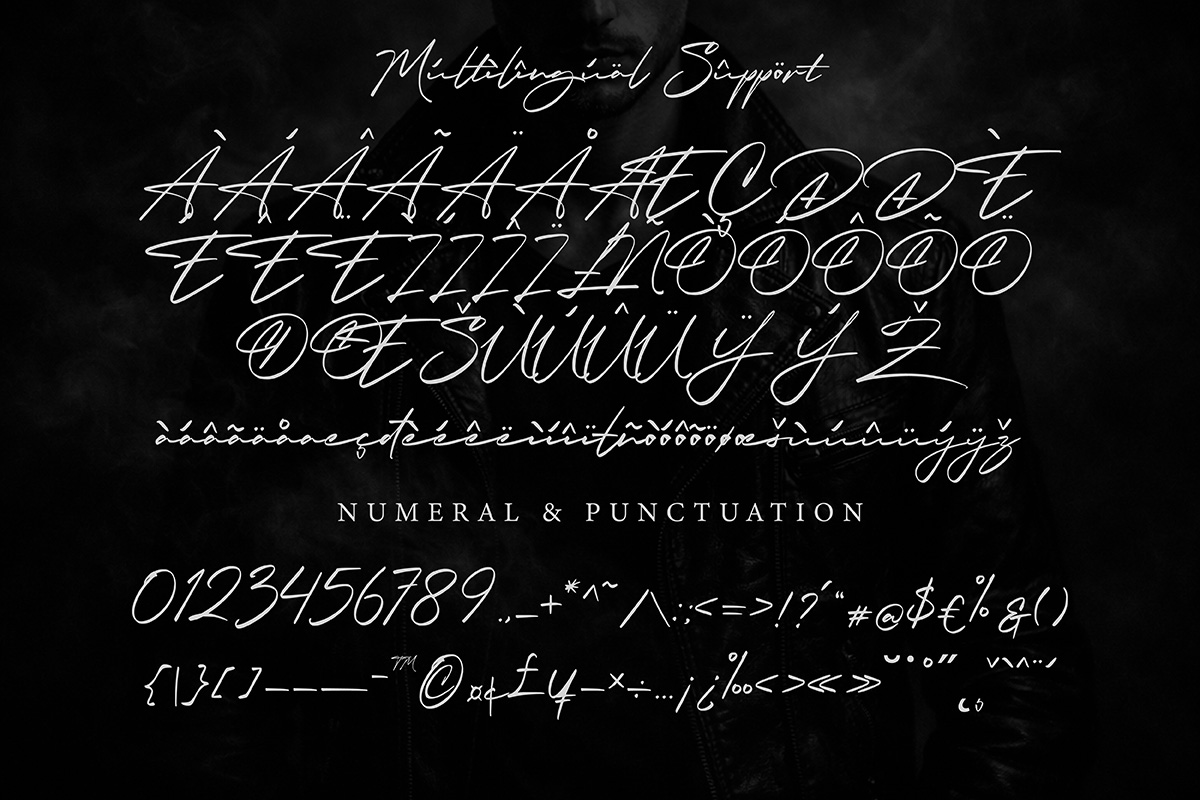 Múltîlîngúäl Sûppört
ÀÁÂÃÄÅÆÇÐĐÈ
ÉÊËÌÍÎÏŁÑÒÓÔÕÖ
ØŒŠÙÚÛÜŸÝŽ
àáâãäåæçđèéêëìíîïłñòóôõöøœšùúûüýÿž
NUMERAL & PUNCTUATION
0123456789.,_+*^~/\:;<=>!?´“#@$€%&()
{|}[]–—―-™©¤¢£¥−×÷…¡¿‰<>«»˘˙˚˝ˇ`^¨´